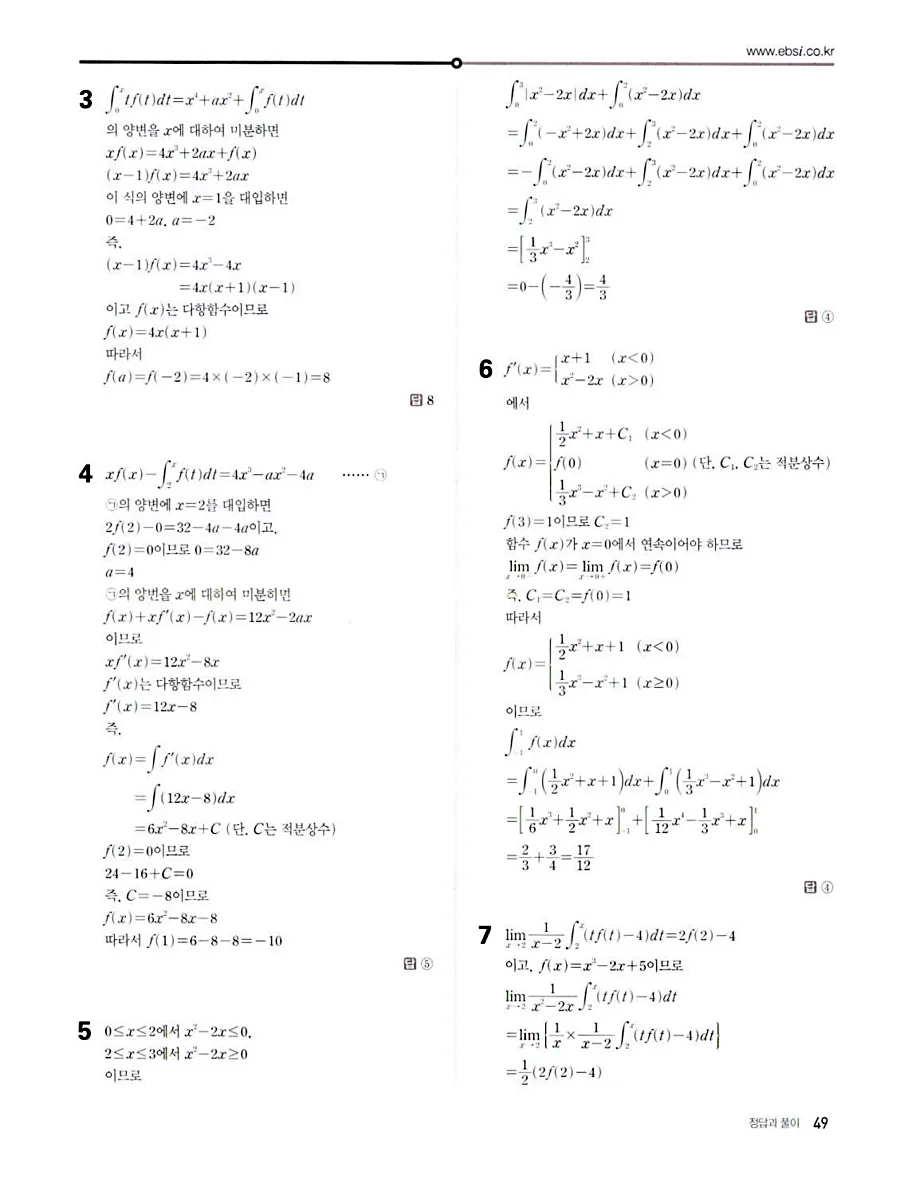 www.ebsi.co.kr
3 ∫₀ˣ tf(t)dt=x⁴+ax²+∫₀ˣ f(t)dt
의 양변을 x에 대하여 미분하면
xf(x)=4x³+2ax+f(x)
(x-1)f(x)=4x³+2ax
이 식의 양변에 x=1을 대입하면
0=4+2a, a=-2
즉,
(x-1)f(x)=4x³-4x
=4x(x+1)(x-1)
이고 f(x)는 다항함수이므로
f(x)=4x(x+1)
따라서
f(a)=f(-2)=4×(-2)×(-1)=8
답 8
4 xf(x)-∫₂ˣ f(t)dt=4x³-ax²-4a ······ ㉠
㉠의 양변에 x=2를 대입하면
2f(2)-0=32-4a-4a이고,
f(2)=0이므로 0=32-8a
a=4
㉠의 양변을 x에 대하여 미분하면
f(x)+xf'(x)-f(x)=12x²-2ax
이므로
xf'(x)=12x²-8x
f'(x)는 다항함수이므로
f'(x)=12x-8
즉,
f(x)=∫f'(x)dx
=∫(12x-8)dx
=6x²-8x+C (단, C는 적분상수)
f(2)=0이므로
24-16+C=0
즉, C=-8이므로
f(x)=6x²-8x-8
따라서 f(1)=6-8-8=-10
답 ⑤
5 0≤x≤2에서 x²-2x≤0,
2≤x≤3에서 x²-2x≥0
이므로
∫₀³|x²-2x|dx+∫₀²(x²-2x)dx
=∫₀²(-x²+2x)dx+∫₂³(x²-2x)dx+∫₀²(x²-2x)dx
=-∫₀²(x²-2x)dx+∫₂³(x²-2x)dx+∫₀²(x²-2x)dx
=∫₂³(x²-2x)dx
=[1/3 x³-x²]₂³
=0-(-4/3)=4/3
답 ④
6 f'(x)={x+1 (x<0)
x²-2x (x>0)
에서
1/2 x²+x+C₁ (x<0)
f(x)={f(0) (x=0) (단, C₁, C₂는 적분상수)
1/3 x³-x²+C₂ (x>0)
f(3)=1이므로 C₂=1
함수 f(x)가 x=0에서 연속이어야 하므로
lim x→0- f(x)=lim x→0+ f(x)=f(0)
즉, C₁=C₂=f(0)=1
따라서
f(x)={1/2 x²+x+1 (x<0)
1/3 x³-x²+1 (x≥0)
이므로
∫₋₁¹ f(x)dx
=∫₋₁⁰(1/2 x²+x+1)dx+∫₀¹(1/3 x³-x²+1)dx
=[1/6 x³+1/2 x²+x]₋₁⁰+[1/12 x⁴-1/3 x³+x]₀¹
=2/3+3/4=17/12
답 ④
7 lim x→2 1/(x-2) ∫₂ˣ(tf(t)-4)dt=2f(2)-4
이고, f(x)=x³-2x+5이므로
lim x→2 1/(x²-2x) ∫₂ˣ(tf(t)-4)dt
=lim x→2 {1/x × 1/(x-2) ∫₂ˣ(tf(t)-4)dt}
=1/2(2f(2)-4)
정답과 풀이 49